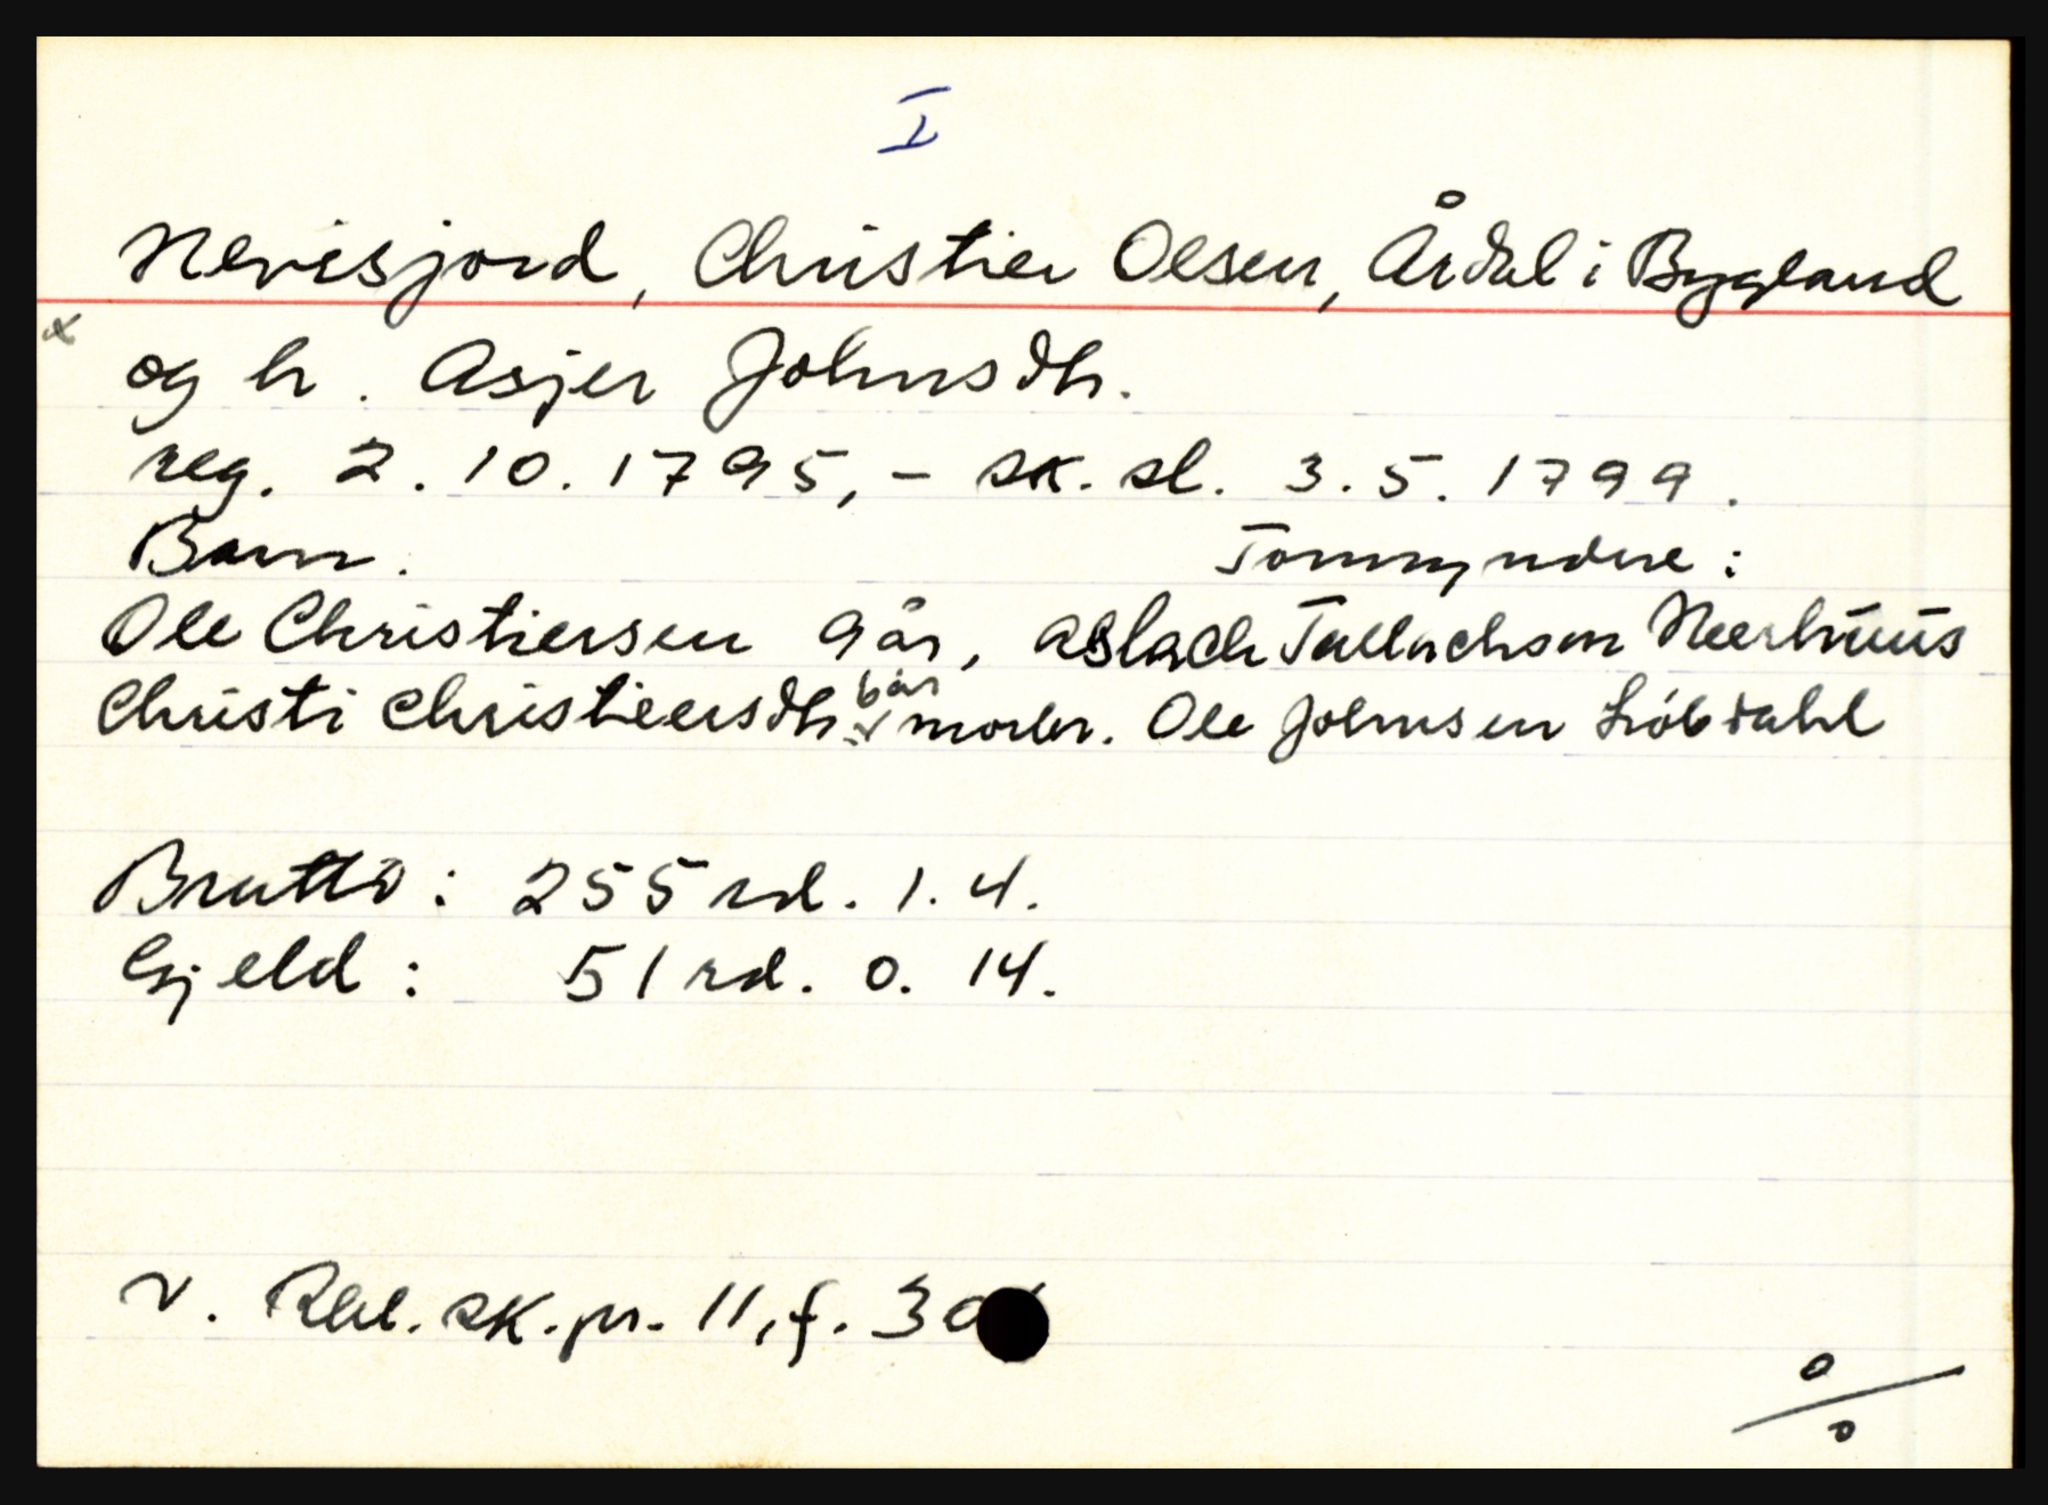 I
Nevisjord, Christier Olsen, Årdal i Bygland
x
og h. Asjer Johnsdh.
reg. 2.10.1795, - sk. sl. 3.5.1799.
Barn. Formyndere:
Ole Christiersen 9 år, Aslach Tallachson Neerhuus
Christi Christieersdh 6 år morbr. Ole Johnsen Liöbdahl
Brutto: 255 rd. 1. 4.
Gjeld: 51 rd. 0. 14.
v. Rbl. sk. pr. 11, f. 30
o/o